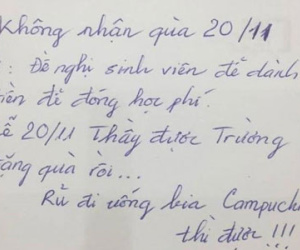 Không nhận qùa 20/11
: Đề nghị sinh viên để dành
iền để đóng học phí.
ễ 20/11 Thầy được Trường
ặng quà rồi...
Rủ đi uống bia Campuch
thì được !!!